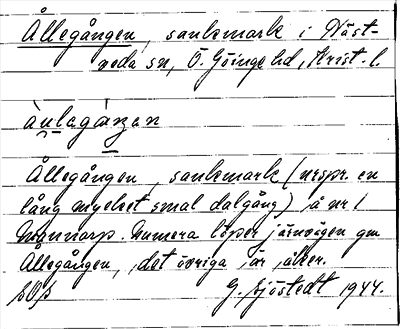 Ållegången, sankmark i Näst-
reda sn, Ö. Göinge hd, Krist. l.
Ållegången, sankmark (urspr. en
lång mycket smal dalgång) å nr 1
Mannarp. Numera löper järnvägen gm
Ållegången, det övriga är åker.
G. Sjöstedt 1944.